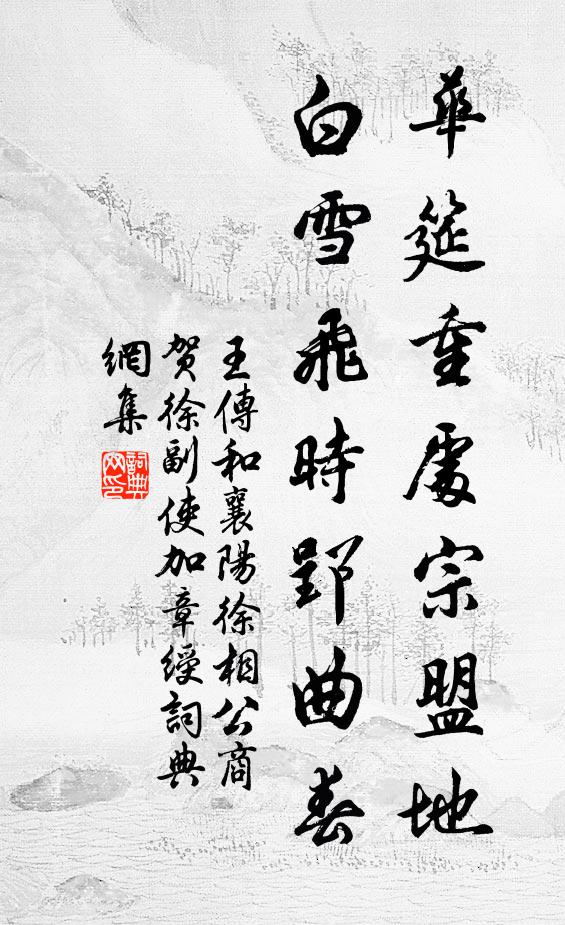 華筵重處宗盟地
白雪飛時郢曲春
王傳和襄陽徐相公商
賀徐副使加章綬詞典
網集
詞典
网印